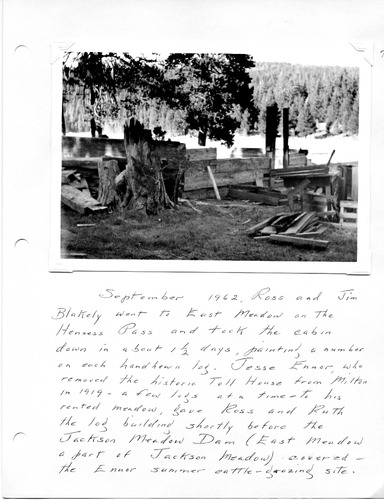 September 1962, Ross and Jim
Blakely went to East Meadow on the
Henness Pass and took the cabin
down in about 1½ days, painting a number
on each handhewn log. Jesse Ennor, who
removed the historic Toll House from Milton
in 1919 - a few logs at a time to his
rented meadow, gave Ross and Ruth
the log building shortly before the
Jackson Meadow Dam (East Meadow
a part of Jackson Meadow) covered -
the Ennor summer cattle-grazing site.